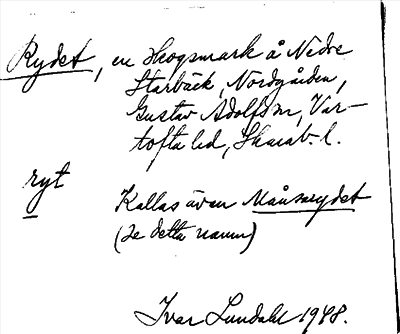 Rydet, en skogsmark å Nedre
Starbäck, Nordgården,
Gustav Adolfs sn, Var-
tofta hd, Skarab. l.
ryt
Kallas även Månsarydet
(se detta namn)
Ivar Lundahl 1948.